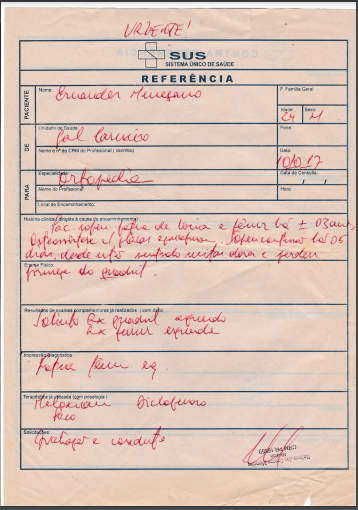 URGENTE!
SUS
SISTEMA ÚNICO DE SAÚDE
REFERÊNCIA
PACIENTE
Nome:
Ernander
F. Família Geral
Idade: 24
Sexo: M
DE
Unidade de Saúde
Gal Carneiro
Fone:
Nome e nº do CRM do Profissional ( carimbo)
Data:
PARA
Especialidade:
Ortopedia
Data da Consulta:
Nome do Profissional:
Hora:
Local do Encaminhamento:
História clínica ( dirigida à causa do encaminhamento)
Pac. sofreu fratura de e fêmur há ± 03 anos
Osteossíntese c/ placas há 05
dias, desde então sentindo muitas dores e perdeu
força do quadril.
Exame Físico:
Resultados de exames complementares já realizados. ( com data)
Solicito Rx quadril esquerdo
Rx femur esquerdo
Impressão diagnóstica
Fratura fêmur esq.
Terapêutica já utilizada (com posologia )
Meloxican Diclofenaco
Solicitações:
Avaliação e conduta